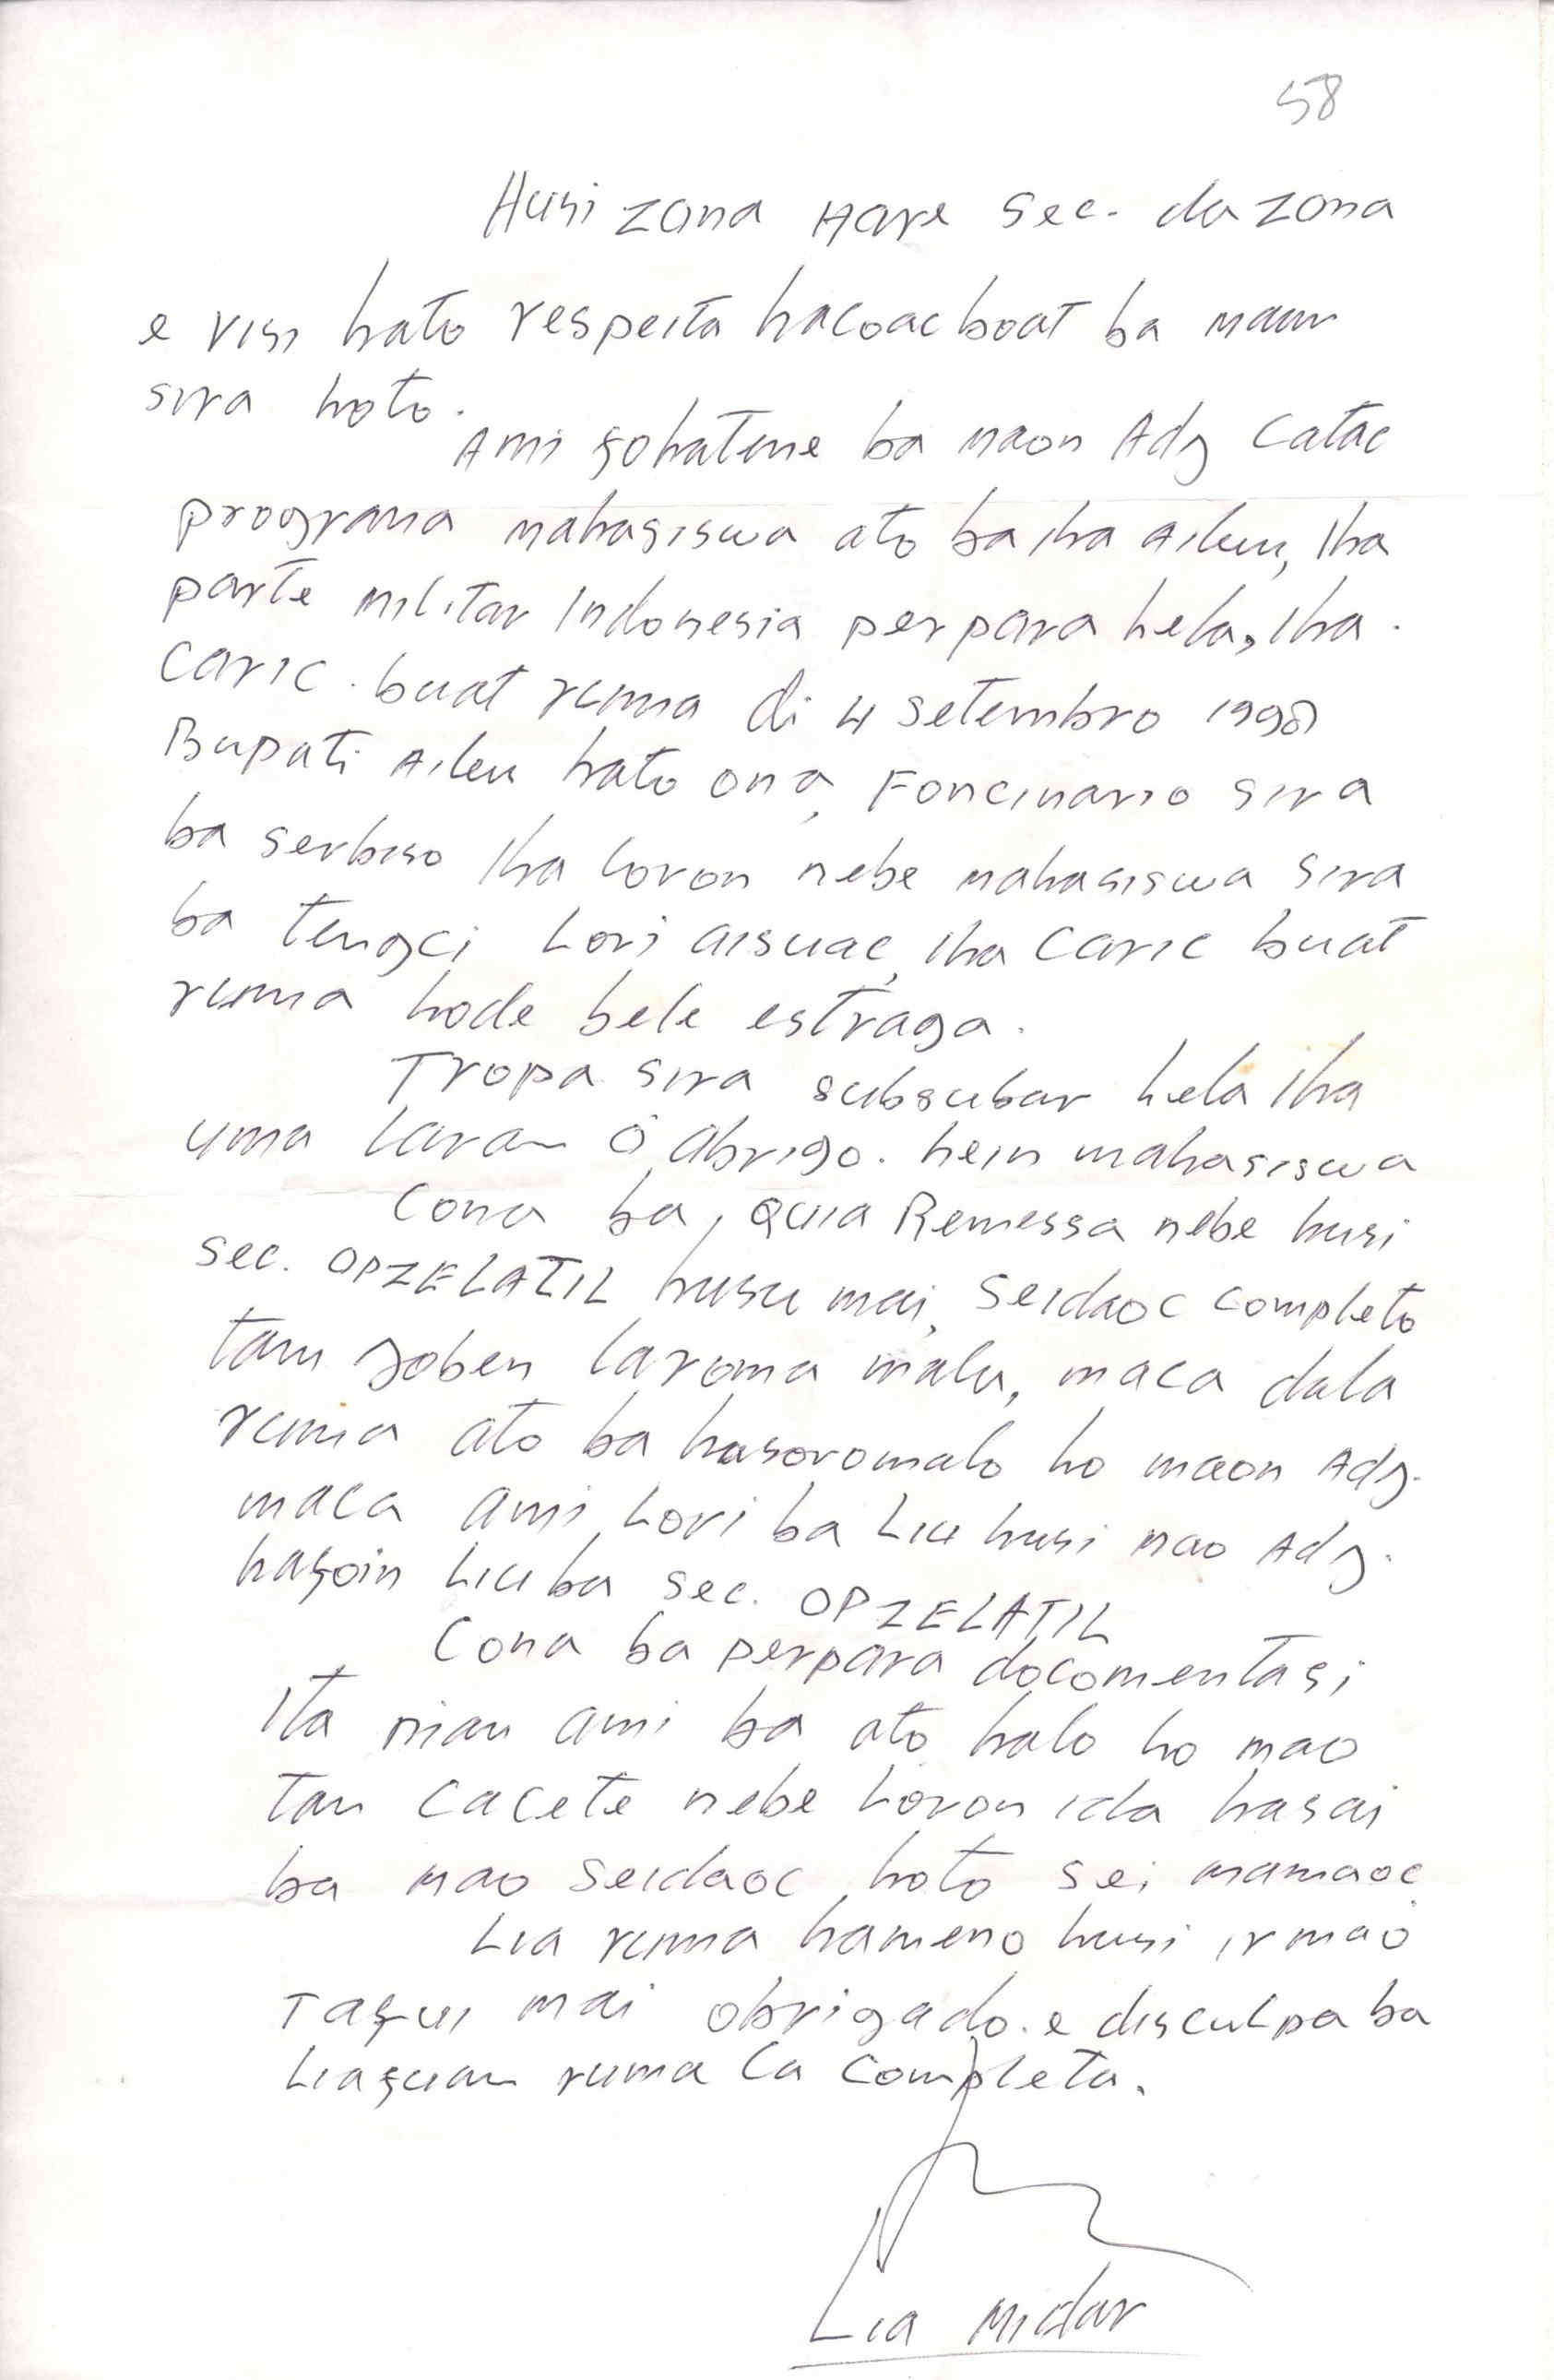 58
Husi zona Hare sec. da zona
e visi hato respeita hacoac boat ba maun
sira hoto.
Ami fohatene ba maon Adj catac
programa mahasiswa ato ba iha Aileu, iha
parte militar Indonesia perpara hela, iha
caric buat ruma di 4 setembro 1998
Bupati Aileu hato ona, Foncinario sira
ba serbiso iha loron nebe mahasiswa sira
ba tengci Lori aisuac, iha caric buat
ruma hode bele estraga.
Tropa sira subsubar hela iha
uma laran ó abrigo. hein mahasiswa
Cona ba, quia Remessa nebe husi
sec. OPZELATIL husu mai, seidaoc completo
tam joben laroma malu, maca dala
ruma ato ba hasoromalo ho maon Adj.
maca ami Lori ba Liu husi mao Adj.
hafoin Liu ba sec. OPZELATIL
Cona ba perpara documentasi
Ita nian ami ba ato halo ho mao
tan cacete nebe Loron ida hasai
ba mao seidaoc hoto sei mamaoc
Lia ruma hameno husi irmaó
Taſui mai obrigado. e disculpa ba
Liafuan ruma la completa.
Lia Midar